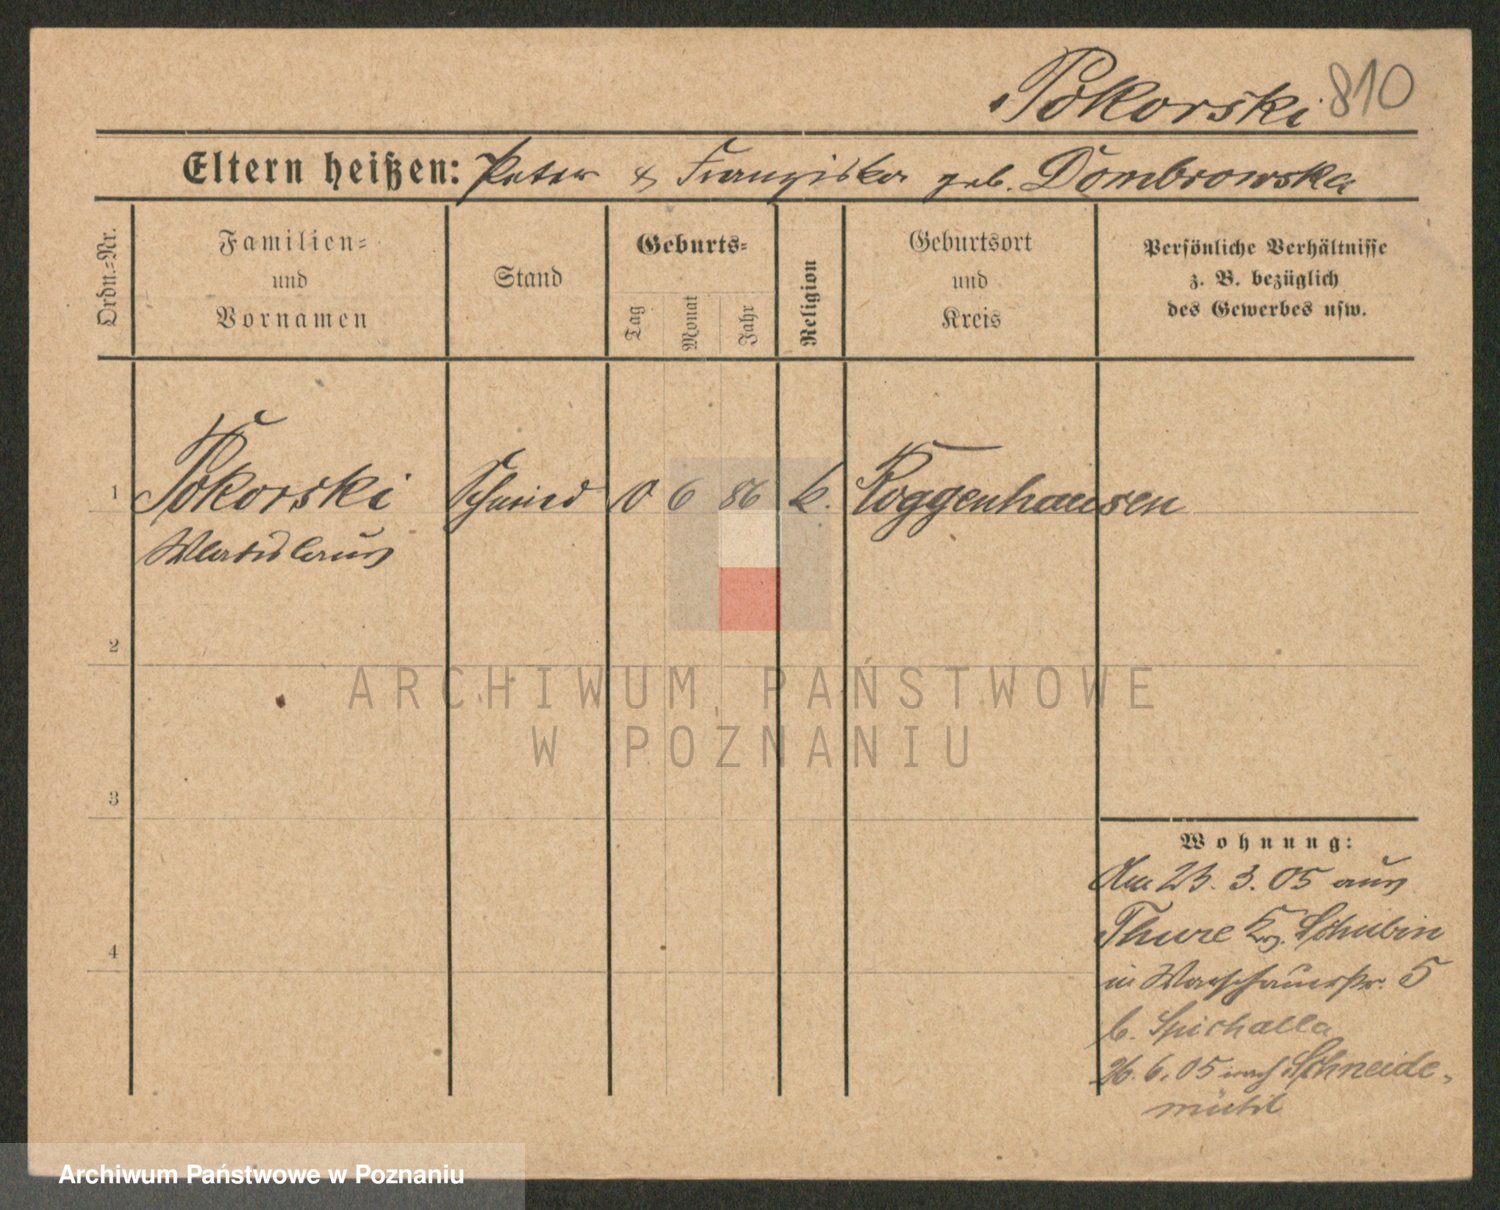 Pokorski 810
Eltern heißen: Peter & Franziska geb. Dombrowska
Ordn.=Nr.
Familien=
und
Vornamen
Stand
Geburts=
Tag
Monat
Jahr
Religion
Geburtsort
und
Kreis
Persönliche Verhältnisse
z. B. bezüglich
des Gewerbes usw.
1 Pokorski Schmied 6 86 k. Roggenhausen
Wladislaus
2
3
4
Wohnung:
Am 23. 3. 05 aus
Thure Krs. Schubin
in Warschauerstr. 5
b. Spichalla
26. 6. 05 nach Schneide-
mühl
ARCHIWUM PAŃSTWOWE
W POZNANIU
Archiwum Państwowe w Poznaniu